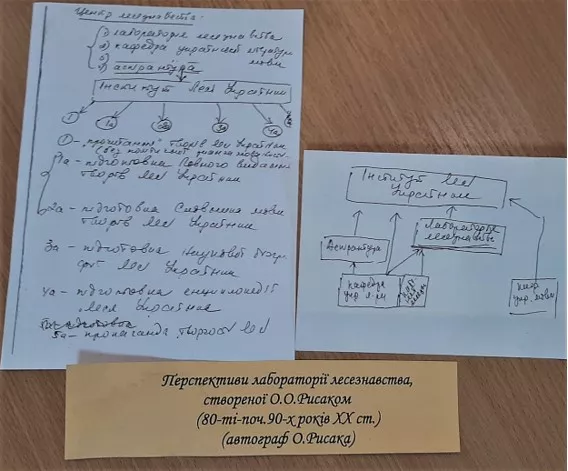 Центр лесезнавства:
1) лабораторія лесезнавства
2) кафедра української літератури
3) мови
4) аспірантура
Інститут Лесі Українки
1
1а
2а
3а
4а
1 – "прочитання" творів Лесі Українки
(без політичної
1а – підготовка Повного видання
творів Лесі Українки
2а – підготовка Словника мови
творів Лесі Українки
3а – підготовка Наукової біогра-
фії Лесі Українки
4а – підготовка енциклопедії
Леся Українка
5а – пропаганда творчості Лесі
Інститут Лесі
Українки
Аспірантура
Лабораторія
лесезнавства
Кафедра
укр. л-ри
каф.
укр. мови
Перспективи лабораторії лесезнавства,
створеної О.О.Рисаком
(80-ті-поч.90-х років ХХ ст.)
(автограф О.Рисака)